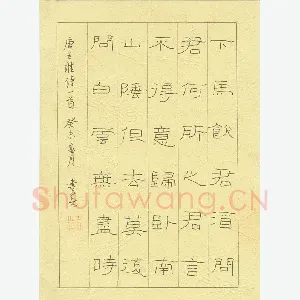 下馬飲君酒問
君何所之君言
不得意歸臥南
山陲但去莫復
問白雲無盡時
唐王維詩一首
Shufawang.CN